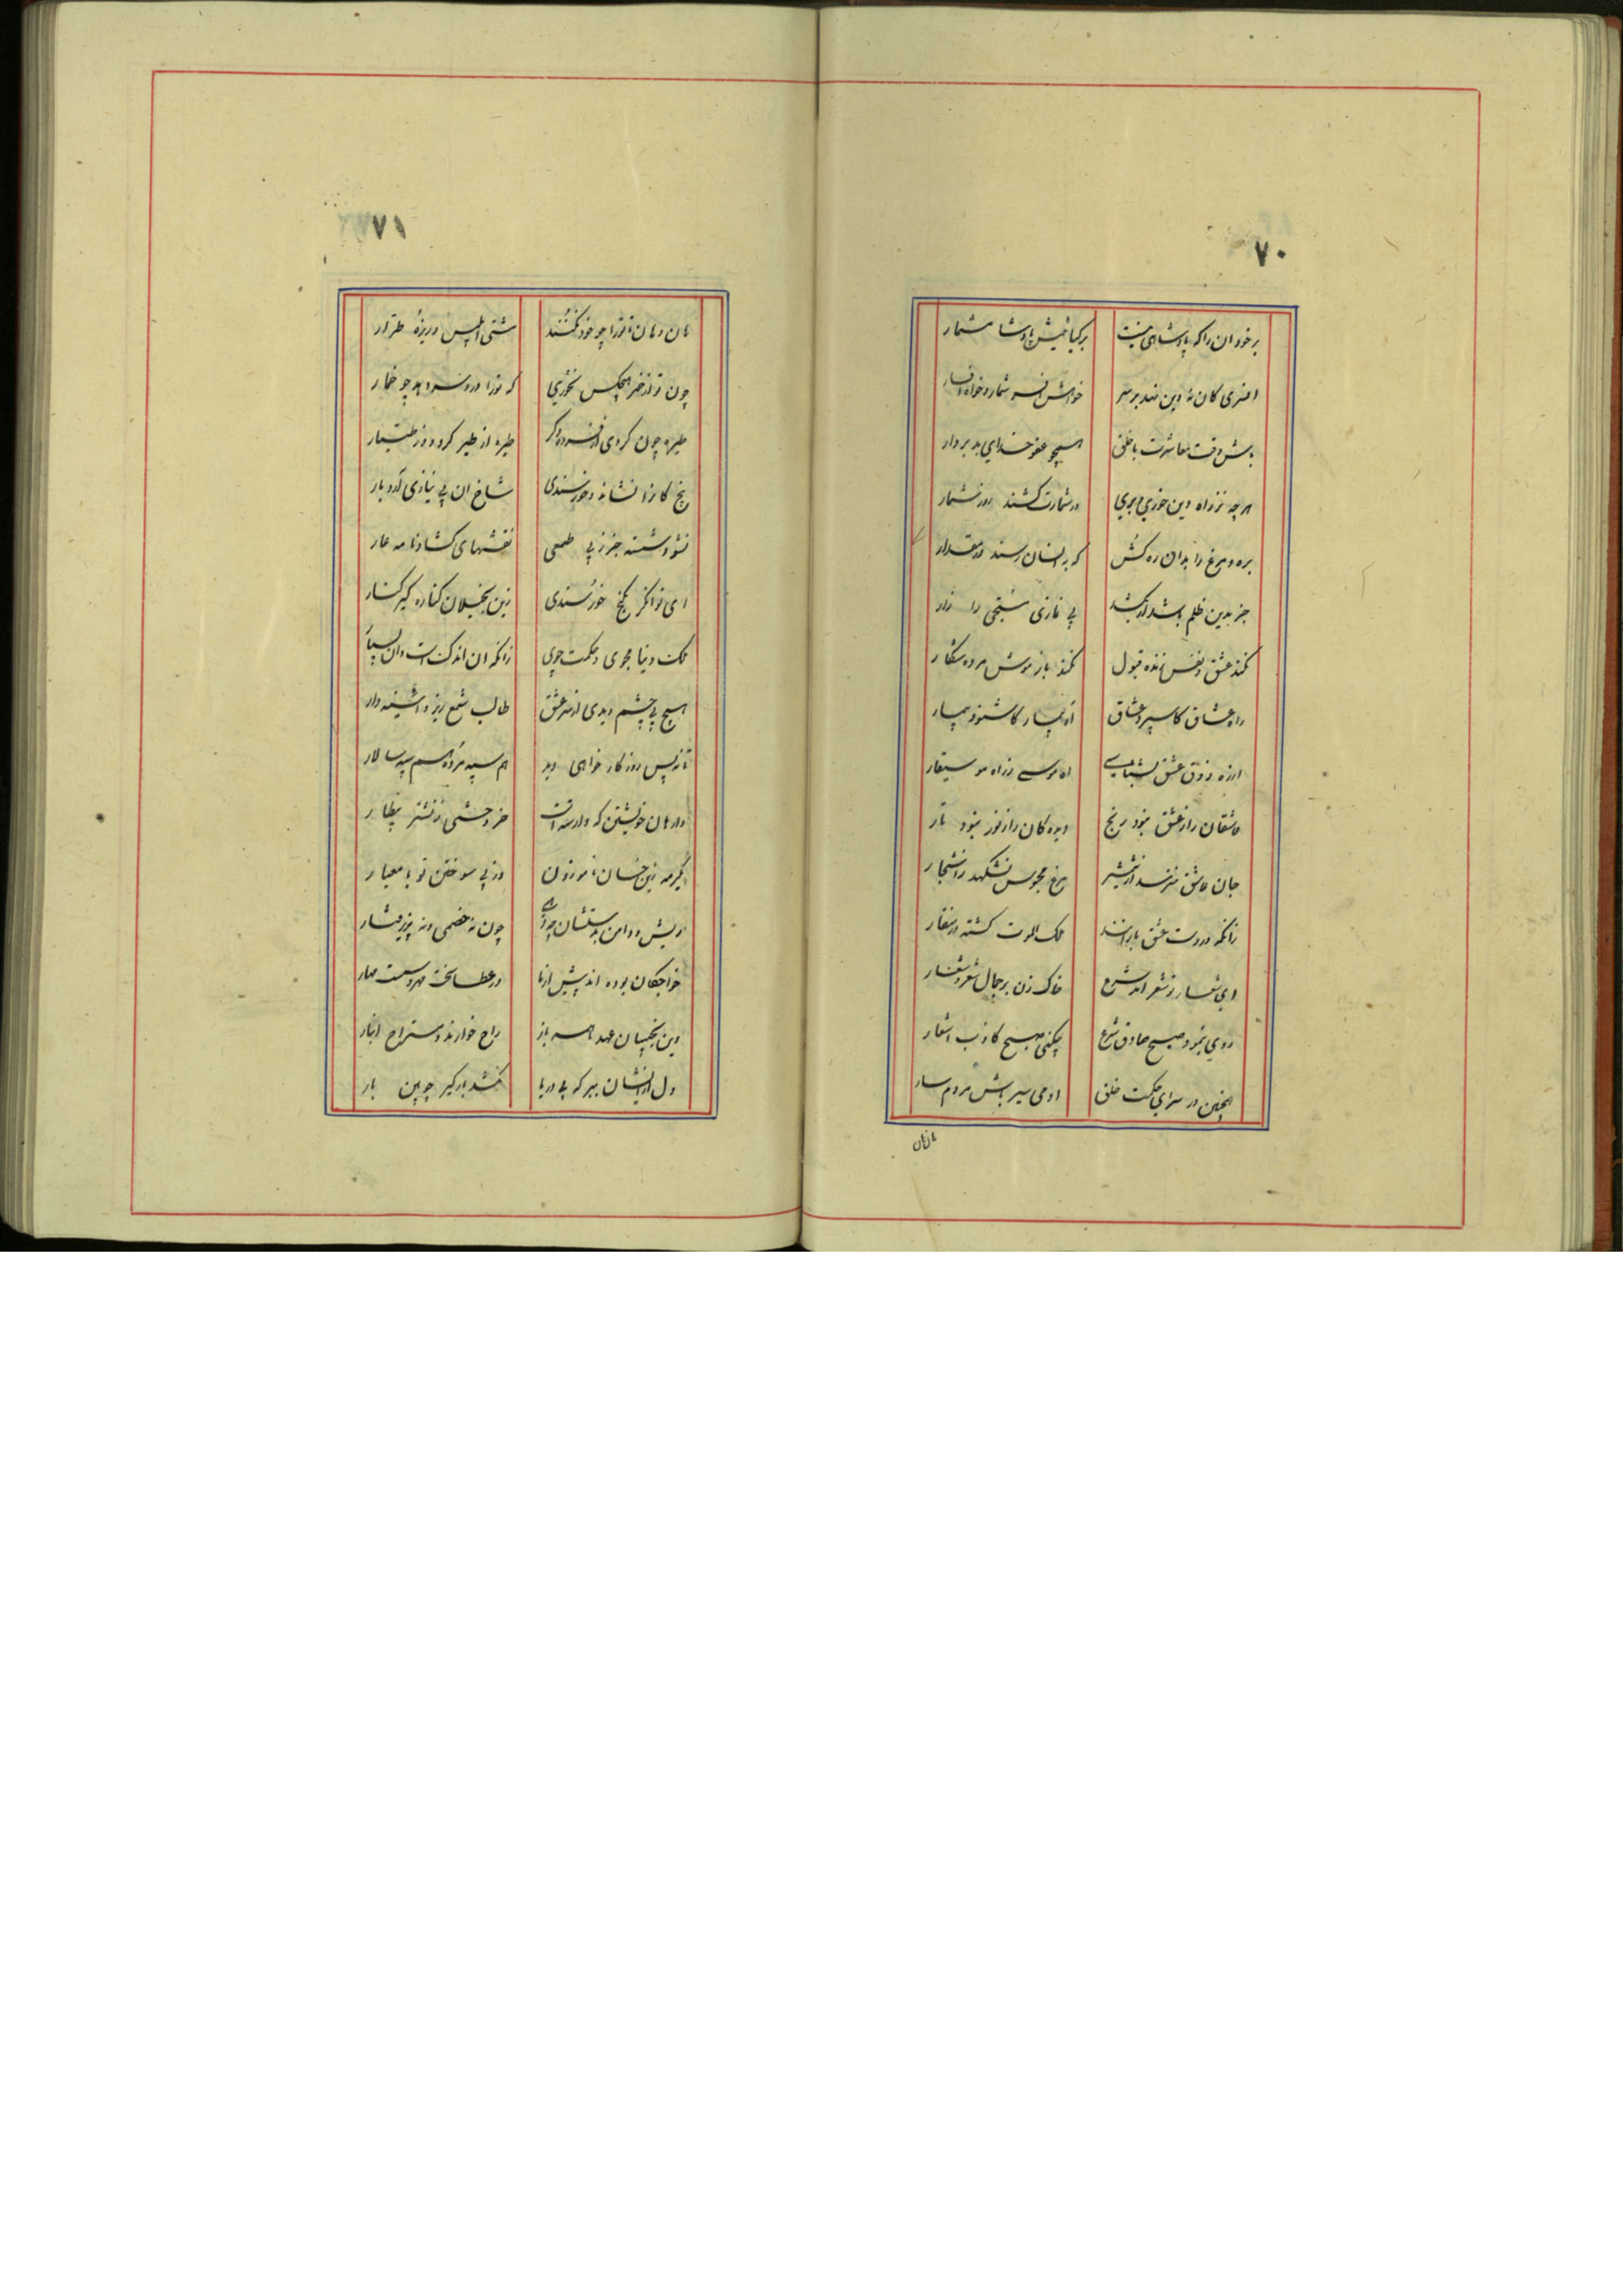 ۷۰
بر خود ان را که پادشاهی نیست بر کیا خیش پادشا مشمار
افسری کان نه دین نهد بر سر خواهش افسر شمار و خواه افسار
باش وقت معاشرت با خلق همچو عفو خدای بدبردار
هرچه نز راه دین خوری و بری در شمارت کشند روز شمار
بره و مرغ را بدان ره کش که به انسان رسند در مقدار
جز بدین ظلم باشد ار بکشد بی نمازی مسبحی را زار
نکند عشق نفس زنده قبول نکند باز موش مرده شکار
راه عشاق کاسپرد عشاق آه بیمار کاشنود بیمار
از ره ذوق عشق بشناسی آه موسی ز راه موسیقار
عاشقان را ز عشق نبود رنج دیدکان را ز نور نبود نار
جان عاشق نترسد از شمشیر مرغ محبوس نشکهد ز اشجار
زانکه در دست عشق بازانند ملک الموت کشته در منقار
ای شعار ز شعر امد شرع خاک زن بر جمال شعر و شعار
روی بنمود صبح صادق شرع چکنی صبح کاذب اشعار
اینچنین در سرای حکمت خلق ادمی سیر باش مردم سار
هان هان
۷۱
هان و هان تا ترا چو خود نکنند مشتی ابلیس دیده طرار
چون تو از خمر هیچکس نخوری که ترا درد سر دهد چو خمار
طیره چون کردی از فسرده دکر طیره از طیر کردد و ز طیار
پنج کان را نشانده خورسندی شاخ ان بی نیازی آرد بار
نشود شسته جز ز بی طمعی نقشهای کشادنامه عار
ای توانکر بکنج خورسندی زین بخیلان کناره کیر کنار
ملک دنیا مجوی و حکمت جوی زانکه ان اندکست و ان بسیار
هیچ بی چشم دیدی از سر عشق طالب شمع زیر و اینه دار
تا نه بس روزکار خواهی دید هم سپه مرده هم سپهسالار
وارهان خویشتن که وارسته است خر وحشی ز نشتر بیطار
نکرمه زین خسان ناموزون وز پی سوختن تو با معیار
ریش و دامن بدستشان چودهی چون نه خصمی و نه پذیرفتار
خواجکان بوده اند پیش از ما در عطا سخت مهر و سست مهار
وین نجیبان عهد ما همه باز راح خوارند و مستراح انبار
دل از ایشان ببر که بی دریا نکشد بارکیر چوبین بار